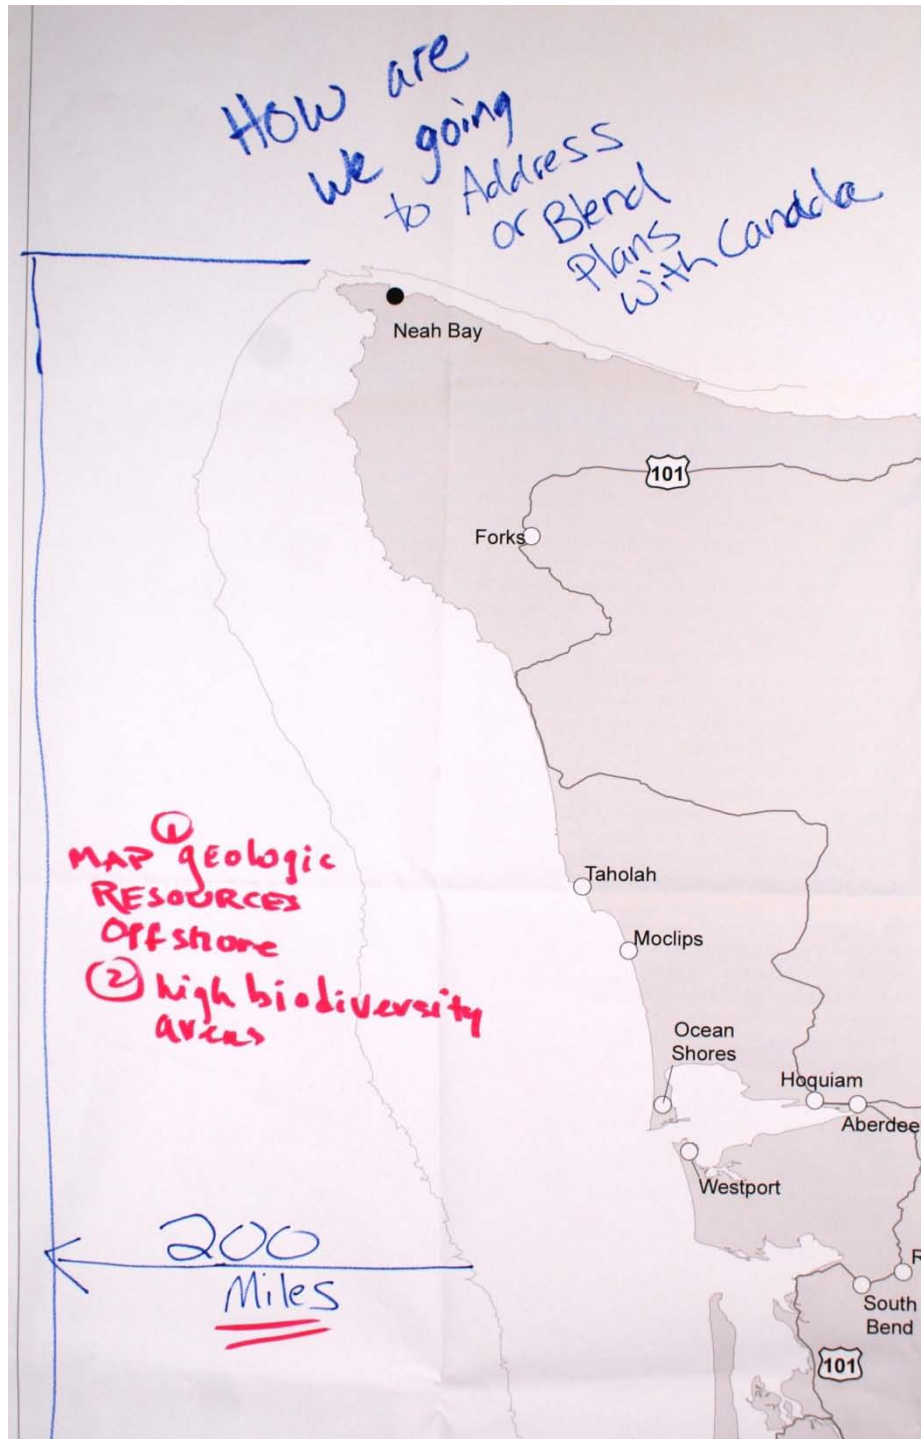 How are
we going
to Address
or Blend
Plans
with Canada
Neah Bay
101
Forks
①
MAP geologic
RESOURCES
Offshore
② high biodiversity
areas
Taholah
Moclips
Ocean
Shores
Hoquiam
Aberdee
Westport
200
Miles
R
South
Bend
101